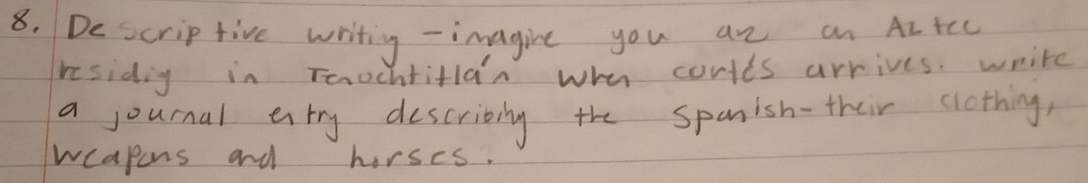 8. Descriptive writing - imagine you are an Aztec
residing in Tenochtitlán when cortés arrives. write
a journal entry describing the Spanish - their clothing,
weapons and horses.